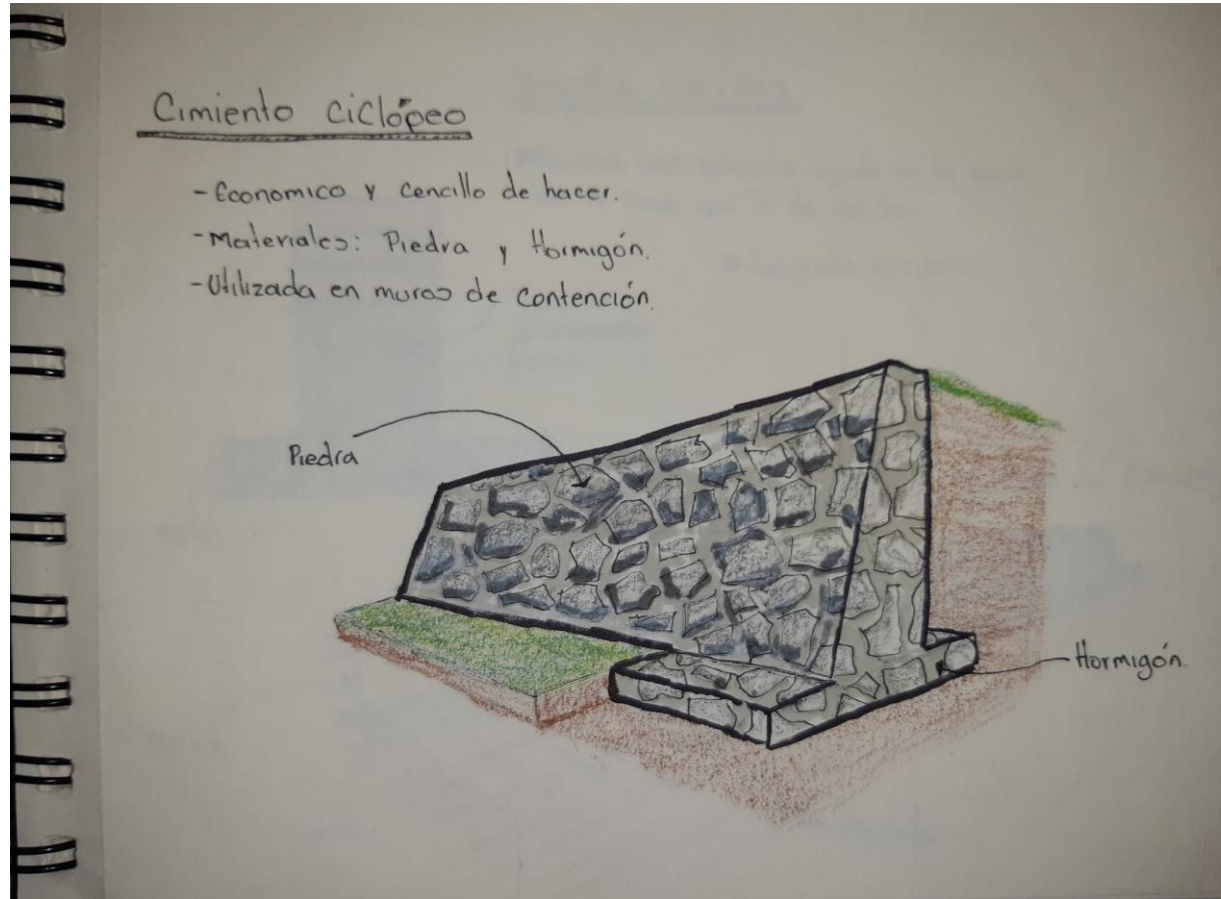 Cimiento Ciclópeo
- Economico y Cencillo de hacer.
- Materiales: Piedra y Hormigón.
- Utilizada en muros de Contención.
Piedra
Hormigón.